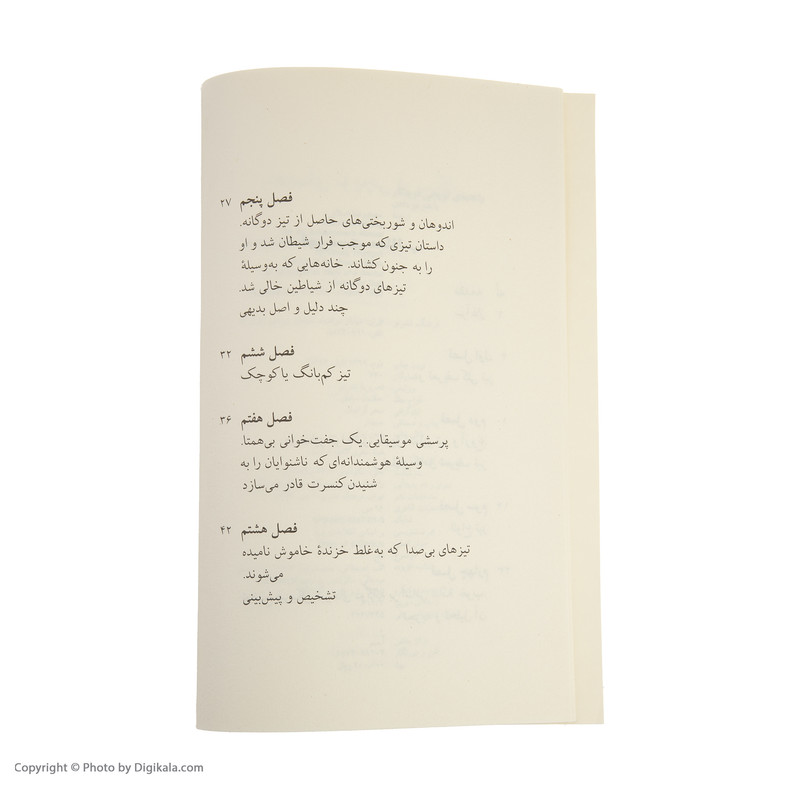 فصل پنجم ۲۷
اندوهان و شوربختی‌های حاصل از تیز دوگانه.
داستان تیزی که موجب فرار شیطان شد و او
را به جنون کشاند. خانه‌هایی که به‌وسیلهٔ
تیزهای دوگانه از شیاطین خالی شد.
چند دلیل و اصل بدیهی
فصل ششم ۳۲
تیز کم‌بانگ یا کوچک
فصل هفتم ۳۶
پرسشی موسیقایی. یک جفت‌خوانی بی‌همتا.
وسیلهٔ هوشمندانه‌ای که ناشنوایان را به
شنیدن کنسرت قادر می‌سازد
فصل هشتم ۴۲
تیزهای بی‌صدا که به‌غلط خزندهٔ خاموش نامیده
می‌شوند.
تشخیص و پیش‌بینی
Copyright © Photo by Digikala.com